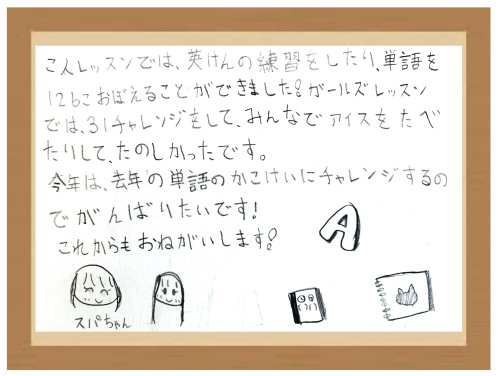 こ人レッスンでは、英けんの練習をしたり、単語を
126こおぼえることができました!ガールズレッスン
では、31チャレンジをして、みんなでアイスをたべ
たりして、たのしかったです。
今年は、去年の単語のかこけいにチャレンジするの
でがんばりたいです!
これからもおねがいします!
A
スパちゃん